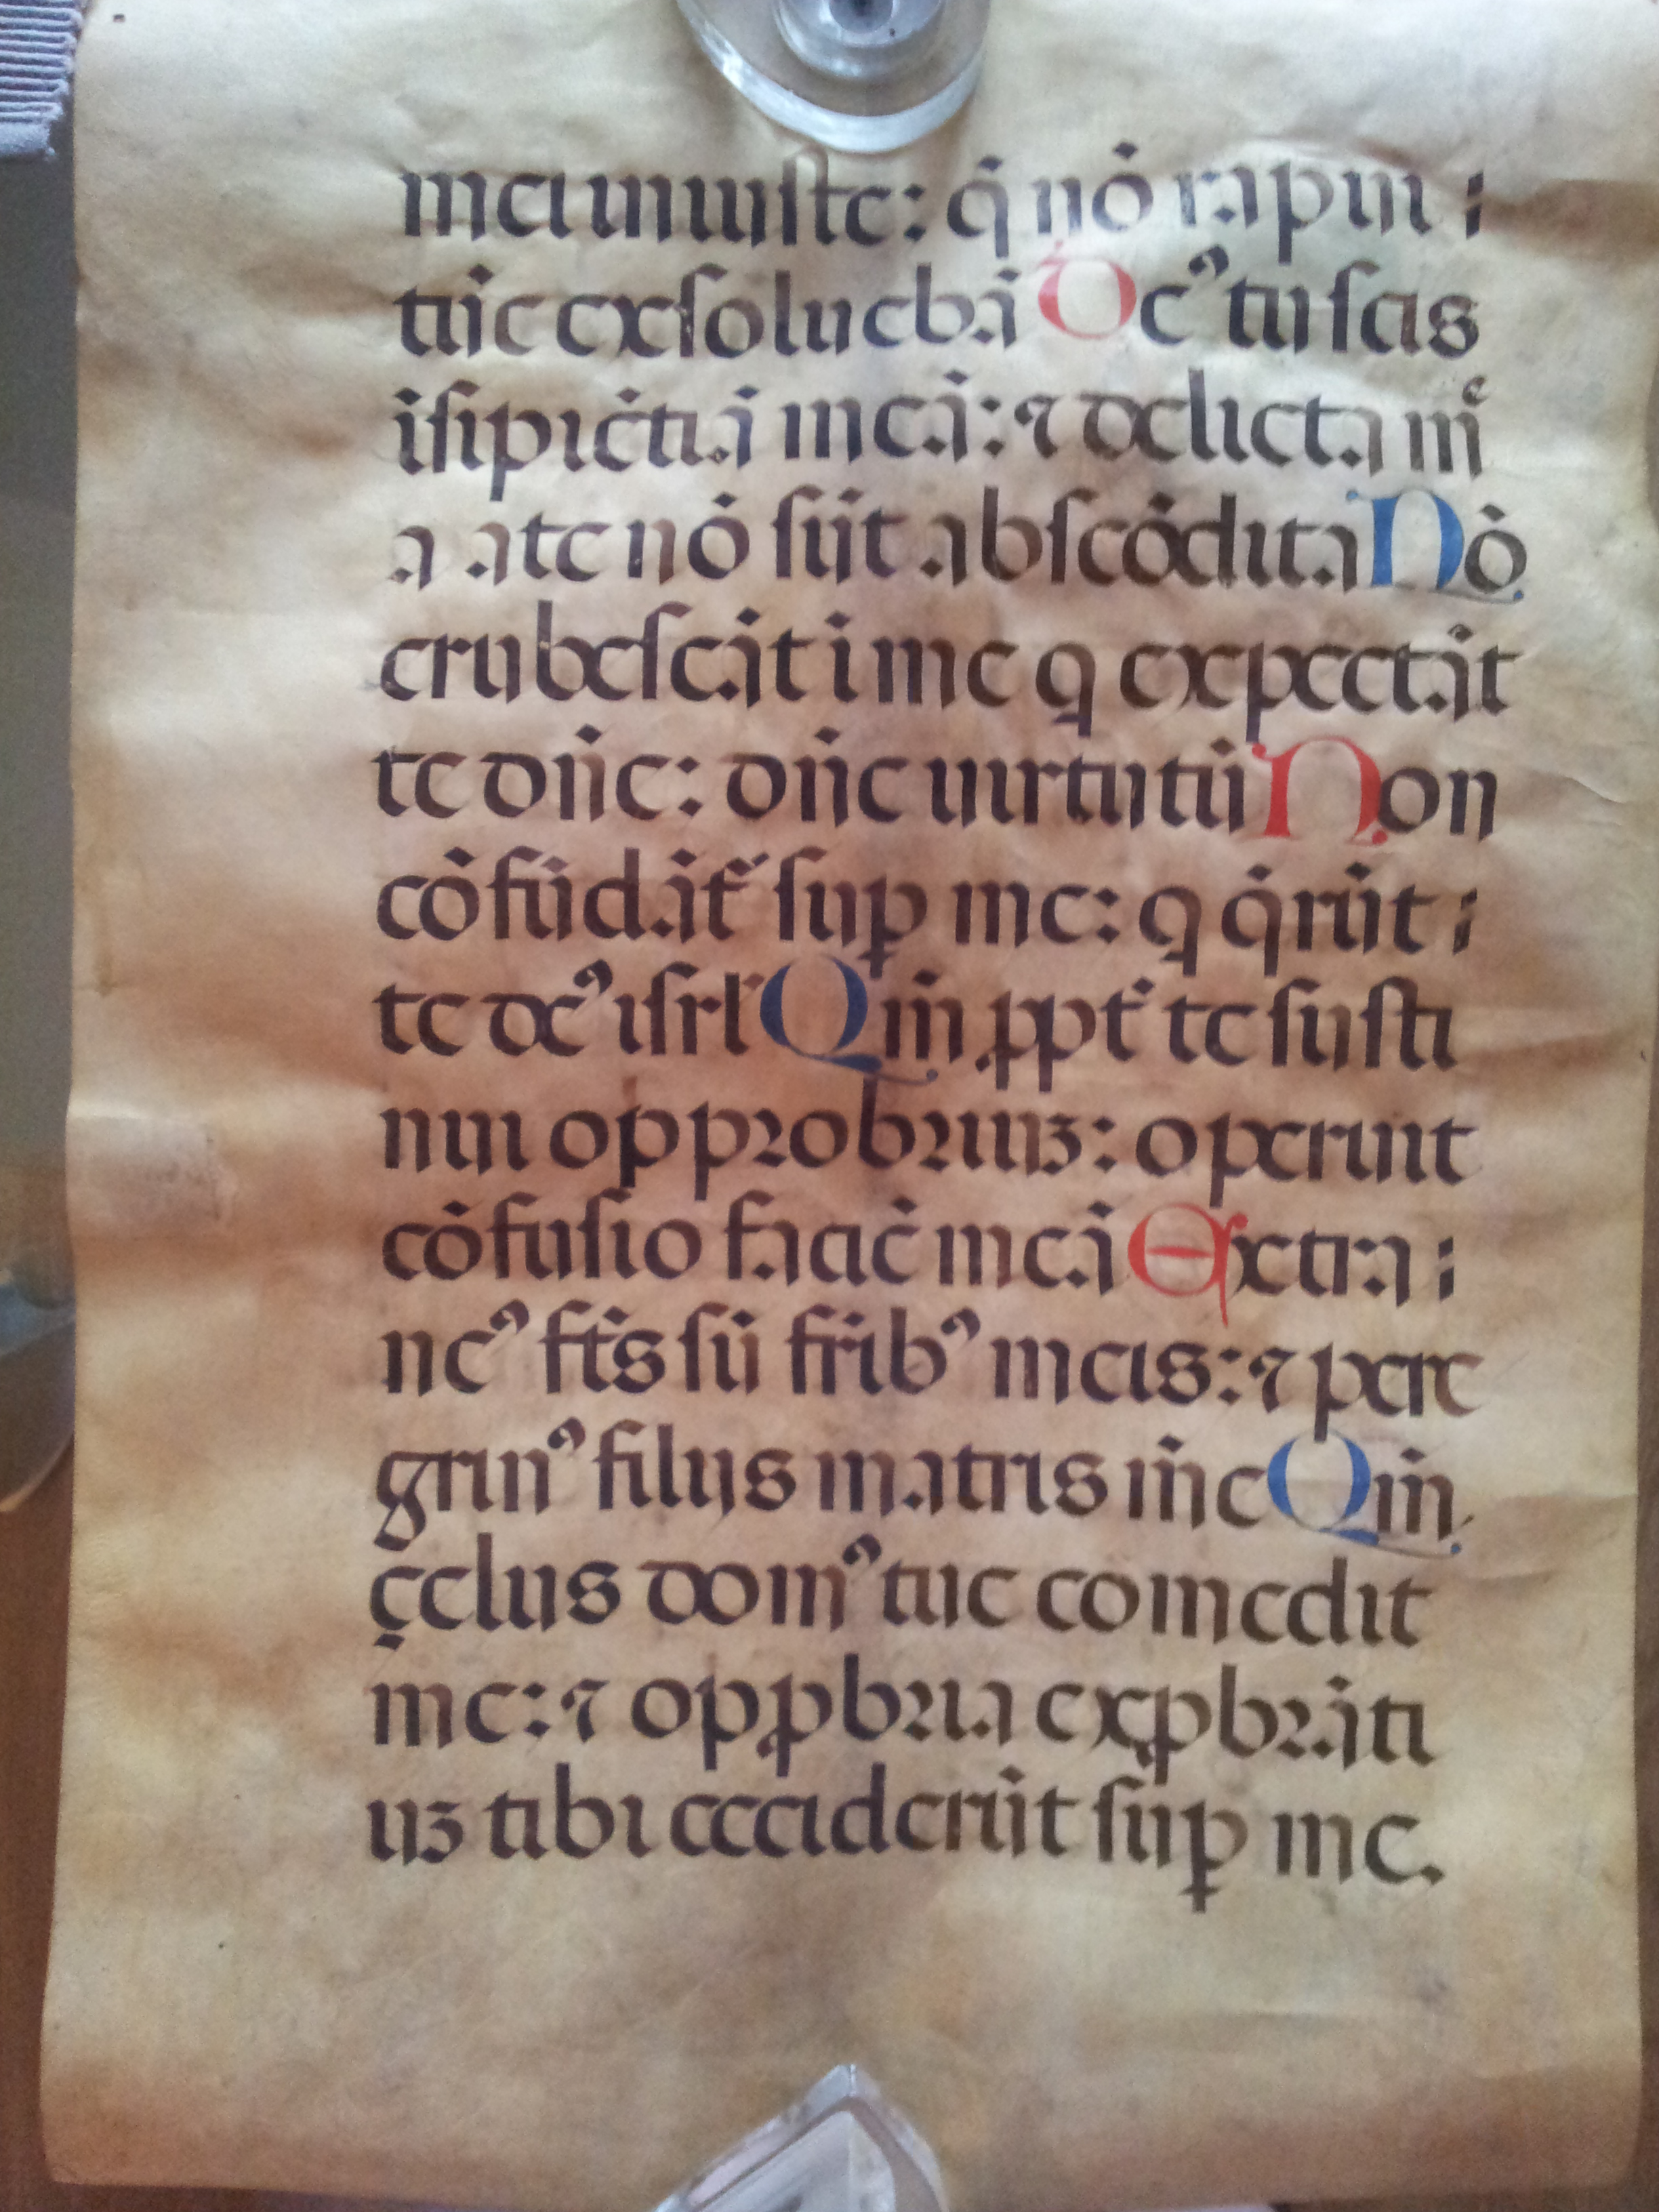 mei iniuste: q̄ nō rapui ;
tūc exsolvebā Deꝰ tu scis
īsipiētiā meā: ⁊ delicta mͤ
a a te nō sūt abscōdita Nō
erubescāt ī me q expectāt
te dn̄e: dn̄e uirtutū Non
cōfūdāt᷑ suꝑ me: q q̄rūt ;
te deꝰ isrl̓ Qm̄ ꝓpt̓ te susti
nui opprobriuꝫ: operuit
cōfusio faciē meā Extra ;
neꝰ ft̄s sū fr̄ibꝰ meis: ⁊ pere
grinꝰ filijs matris m̄e Qm̄
çelus domꝰ tue comedit
me: ⁊ opꝓbria exꝓbrāti
uꝫ tibi ceciderūt suꝑ me.